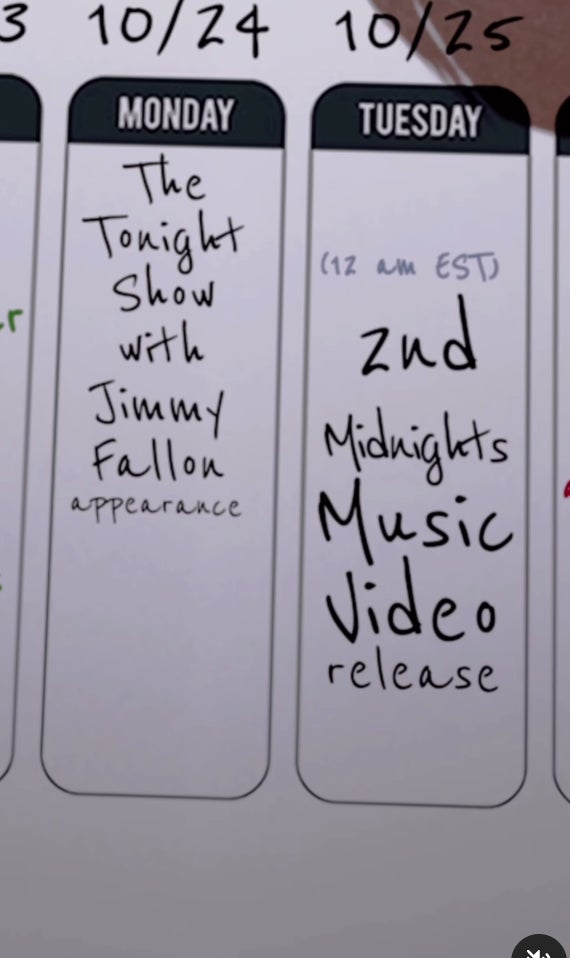 3 10/24 10/25
MONDAY
The
Tonight
Show
with
Jimmy
Fallon
appearance
TUESDAY
(12 am EST)
2nd
Midnights
Music
Video
release
r